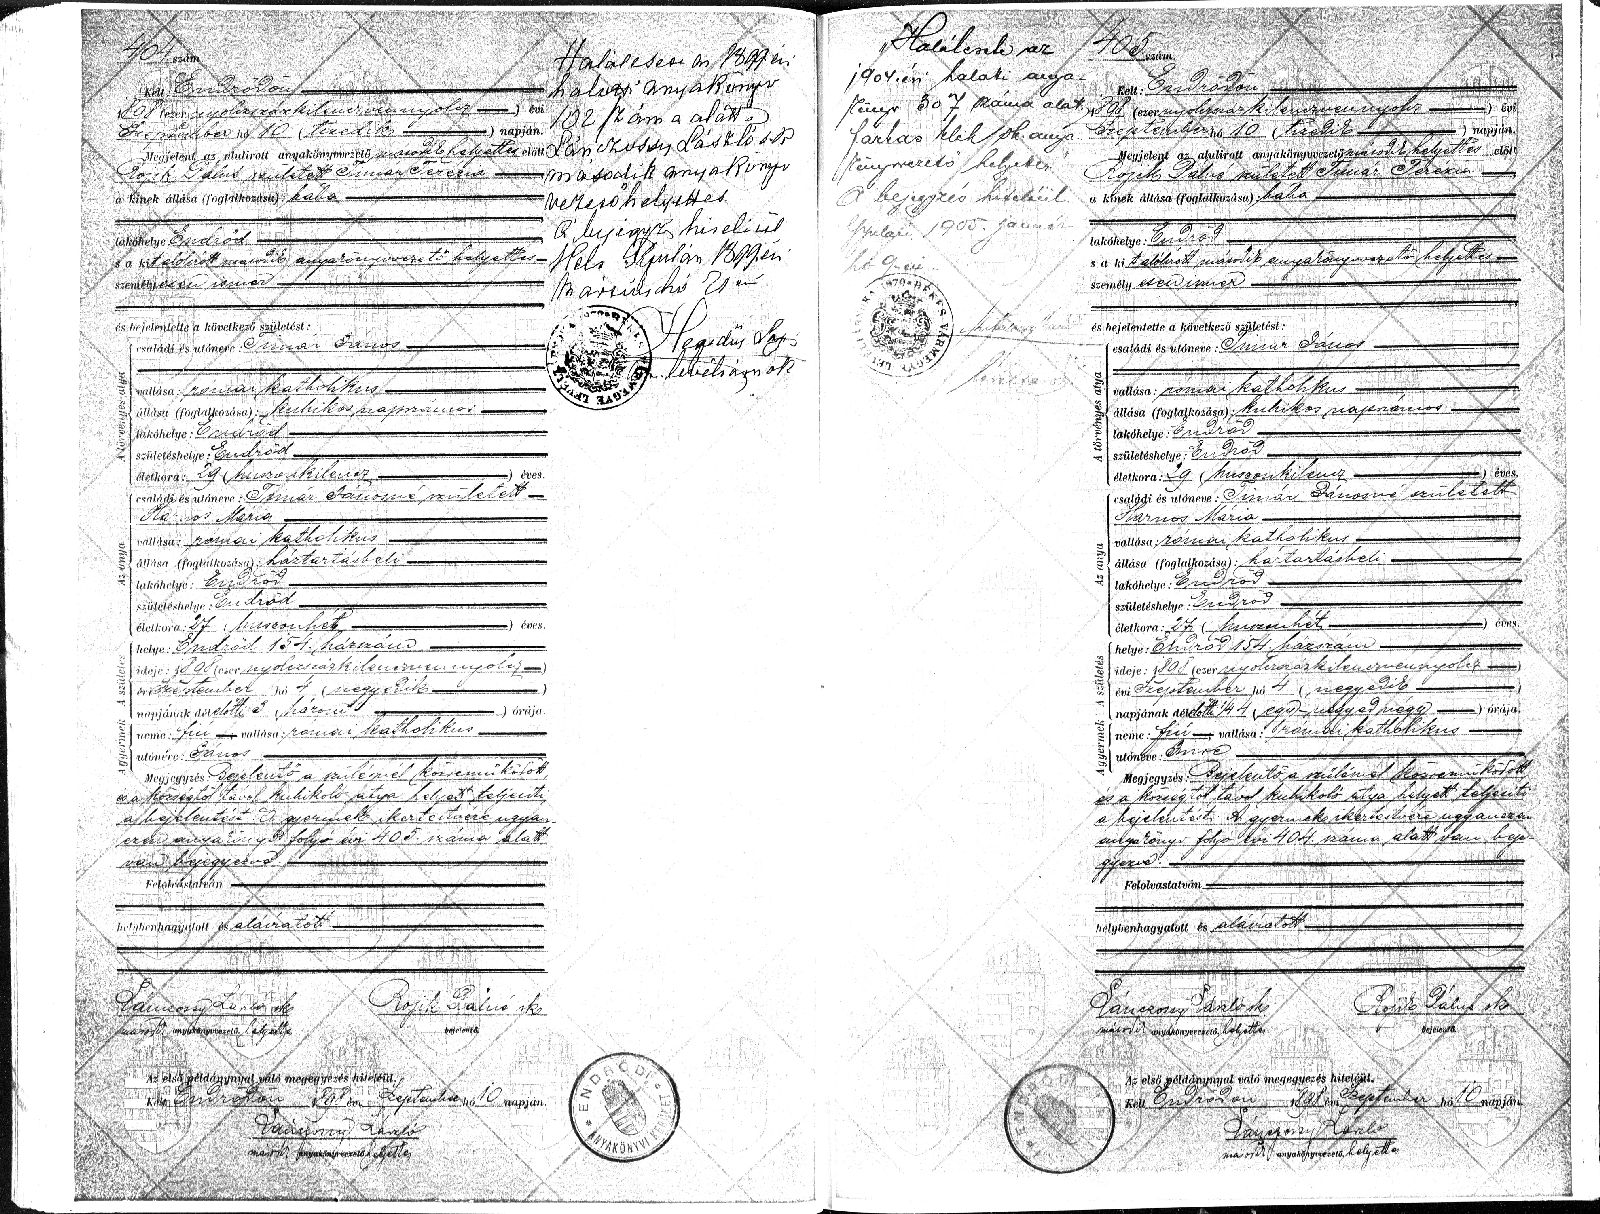 404 szám
Kelt Endrődön
1898 (ezernyolcszázkilencvennyolcz) évi
Szeptember hó 10 (tizedik) napján.
Megjelent az alulirott anyakönyvvezető második helyettes előtt
Rojik Pálné született Timár Terézia
a kinek állása (foglalkozása): bába
lakóhelye Endrőd
s a kit alólirott második anyakönyvvezető helyettes
személyesen ismer
és bejelentette a következő születést:
A törvényes atya
családi és utóneve: Timár János
vallása: romai katholikus
állása (foglalkozása): kubikos napszámos
lakóhelye: Endrőd
születéshelye: Endrőd
életkora: 29 (huszonkilencz) éves.
Az anya
családi és utóneve: Timár Jánosné született
Mária
vallása: romai katholikus
állása (foglalkozása): háztartásbeli
lakóhelye: Endrőd
születéshelye: Endrőd
életkora: 27 (huszonhét) éves.
A születés
helye: Endrőd 154 házszám
ideje: 1898 (ezernyolcszázkilencvennyolcz)
évi Szeptember hó 4 (negyedik)
napjának délelőtti 3 (három) órája.
A gyermek
neme: fiú vallása: romai katholikus
utóneve: János
Megjegyzés: Bejelentő a szülésnél közreműködött
és a községtől távol kubikoló atya helyett teljesiti
a bejelentést. A gyermek ikertestvére ugyan
ezen anyakönyv folyó évi 405 száma alatt
van bejegyezve.
Felolvastatván
helybenhagyatott és aláiratott
Lánczossy László sk
másod. anyakönyvvezető, helyettes
Rojik Pálné sk
bejelentő
Az első példánynyal való megegyezés hiteléül.
Kelt Endrődön 1898 évi Szeptember hó 10 napján.
Lánczossy László
másod. anyakönyvvezető, helyettes
Haláleseset az 1899 évi
halotti anyakönyv
102 szám alatt
Lánczossy László sk
második anyakönyv
vezetőhelyettes
A bejegyzés hiteléül
Gyulán 1899 évi
március hó 21 én
Hegedüs
levéltárnok
ENDRŐDI
ANYAKÖNYVI
Halálesete az
1904. évi halotti anya-
könyv 307 száma alatt.
Farkas Elek sk. anya
könyvvezető helyettes
A bejegyzés hiteléül
Gyulán 1905. január
hó 9 én
BÉKÉS VÁRMEGYE
405 szám.
Kelt: Endrődön,
1898 (ezernyolcszázkilencvennyolcz) évi
Szeptember hó 10 (tizedik) napján.
Megjelent az alulirott anyakönyvvezető második helyettes előtt
Rojik Pálné született Timár Terézia
a kinek állása (foglalkozása): bába
lakóhelye: Endrőd
s a kit alólirott második anyakönyvvezető helyettes
személyesen ismer
és bejelentette a következő születést:
A törvényes atya
családi és utóneve: Timár János
vallása: romai katholikus
állása (foglalkozása): kubikos napszámos
lakóhelye: Endrőd
születéshelye: Endrőd
életkora: 29 (huszonkilencz) éves.
Az anya
családi és utóneve: Timár Jánosné született
Mária
vallása: romai katholikus
állása (foglalkozása): háztartásbeli
lakóhelye: Endrőd
születéshelye: Endrőd
életkora: 27 (huszonhét) éves.
A születés
helye: Endrőd 154 házszám
ideje: 1898 (ezernyolcszázkilencvennyolcz)
évi Szeptember hó 4 (negyedik)
napjának délelőtti 1/4 4 (egy negyed négy) órája.
A gyermek
neme: fiú vallása: romai katholikus
utóneve: Imre
Megjegyzés: Bejelentő a szülésnél közreműködött
és a községtől távol kubikoló atya helyett teljesiti
a bejelentést. A gyermek ikertestvére ugyanezen
anyakönyv folyó évi 404 száma alatt van beje-
gyezve.
Felolvastatván
helybenhagyatott és aláiratott
Lánczossy László sk
másod. anyakönyvvezető, helyettes
Rojik Pálné sk
bejelentő
Az első példánynyal való megegyezés hiteléül.
Kelt Endrődön 1898 évi Szeptember hó 10 napján.
Lánczossy László
másod. anyakönyvvezető, helyettes